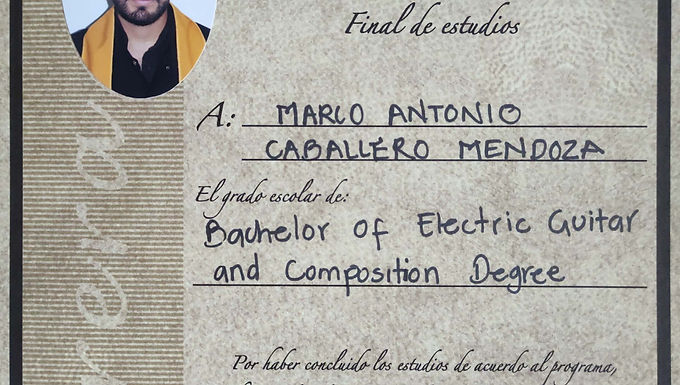 Final de estudios
A: MARCO ANTONIO
CABALLERO MENDOZA
El grado escolar de:
Bachelor of Electric Guitar
and Composition Degree
Por haber concluido los estudios de acuerdo al programa,